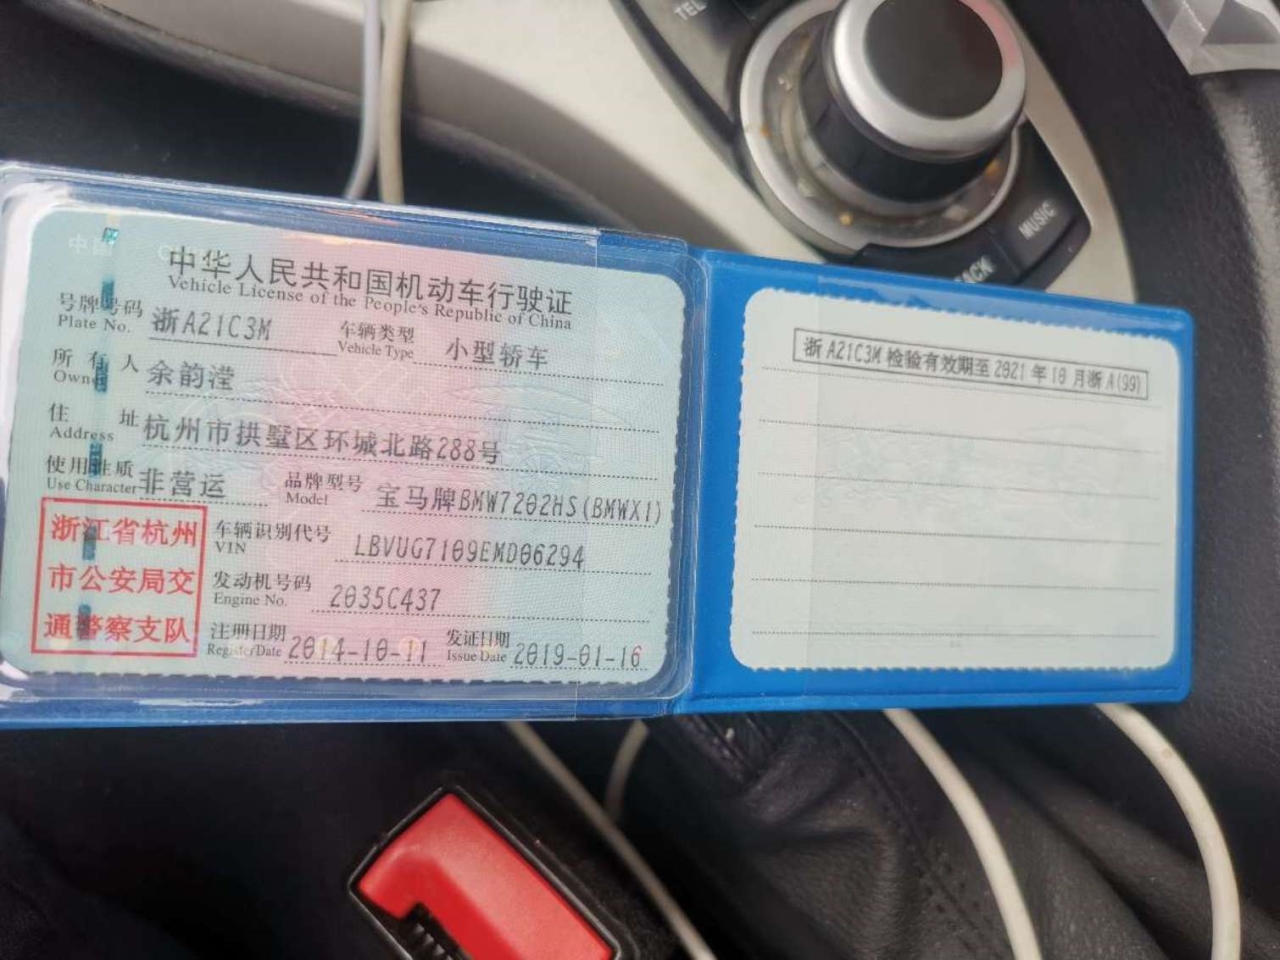 中华人民共和国机动车行驶证
Vehicle License of the People's Republic of China
号牌号码 浙A21C3M 车辆类型 小型轿车
Plate No. Vehicle Type
所有人 余韵滢
Owner
住址 杭州市拱墅区环城北路288号
Address
使用性质 非营运 品牌型号 宝马牌BMW7202HS(BMWX1)
Use Character Model
浙江省杭州
市公安局交
通警察支队
车辆识别代号 LBVUG7109EMD06294
VIN
发动机号码 2035C437
Engine No.
注册日期 2014-10-11 发证日期 2019-01-16
Register Date Issue Date
浙A21C3M 检验有效期至2021年10月浙A(99)
TEL
MUSIC